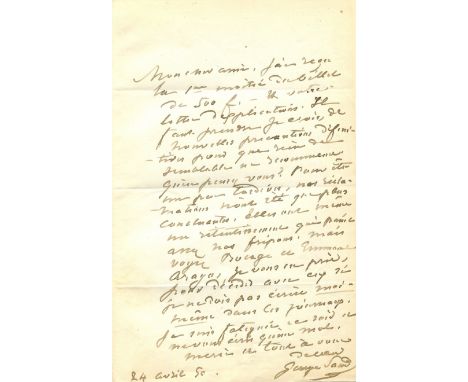 Mon cher ami, j'ai reçu
la 1ère moitié du billet
de 500 f. – et votre
lettre d'explications. Il
faut prendre je crois, de
nouvelles précautions défini-
-tives pour que rien de
semblable ne recommence
qu'en pensez vous? Pour être
un peu tardives, nos récla-
-mations n'ont été que plus
concluantes, elles ont même
un retentissement qui
nos fripons. mais
voyez Bocage et Emmanuel
Arago, je vous en prie,
pour décider avec eux si
je ne dois pas écrire moi-
même dans les journaux.
Je suis fatiguée ce soir et
ne vous écris qu'un mot.
merci et tout à vous
de cœur
George Sand
24 avril 50.